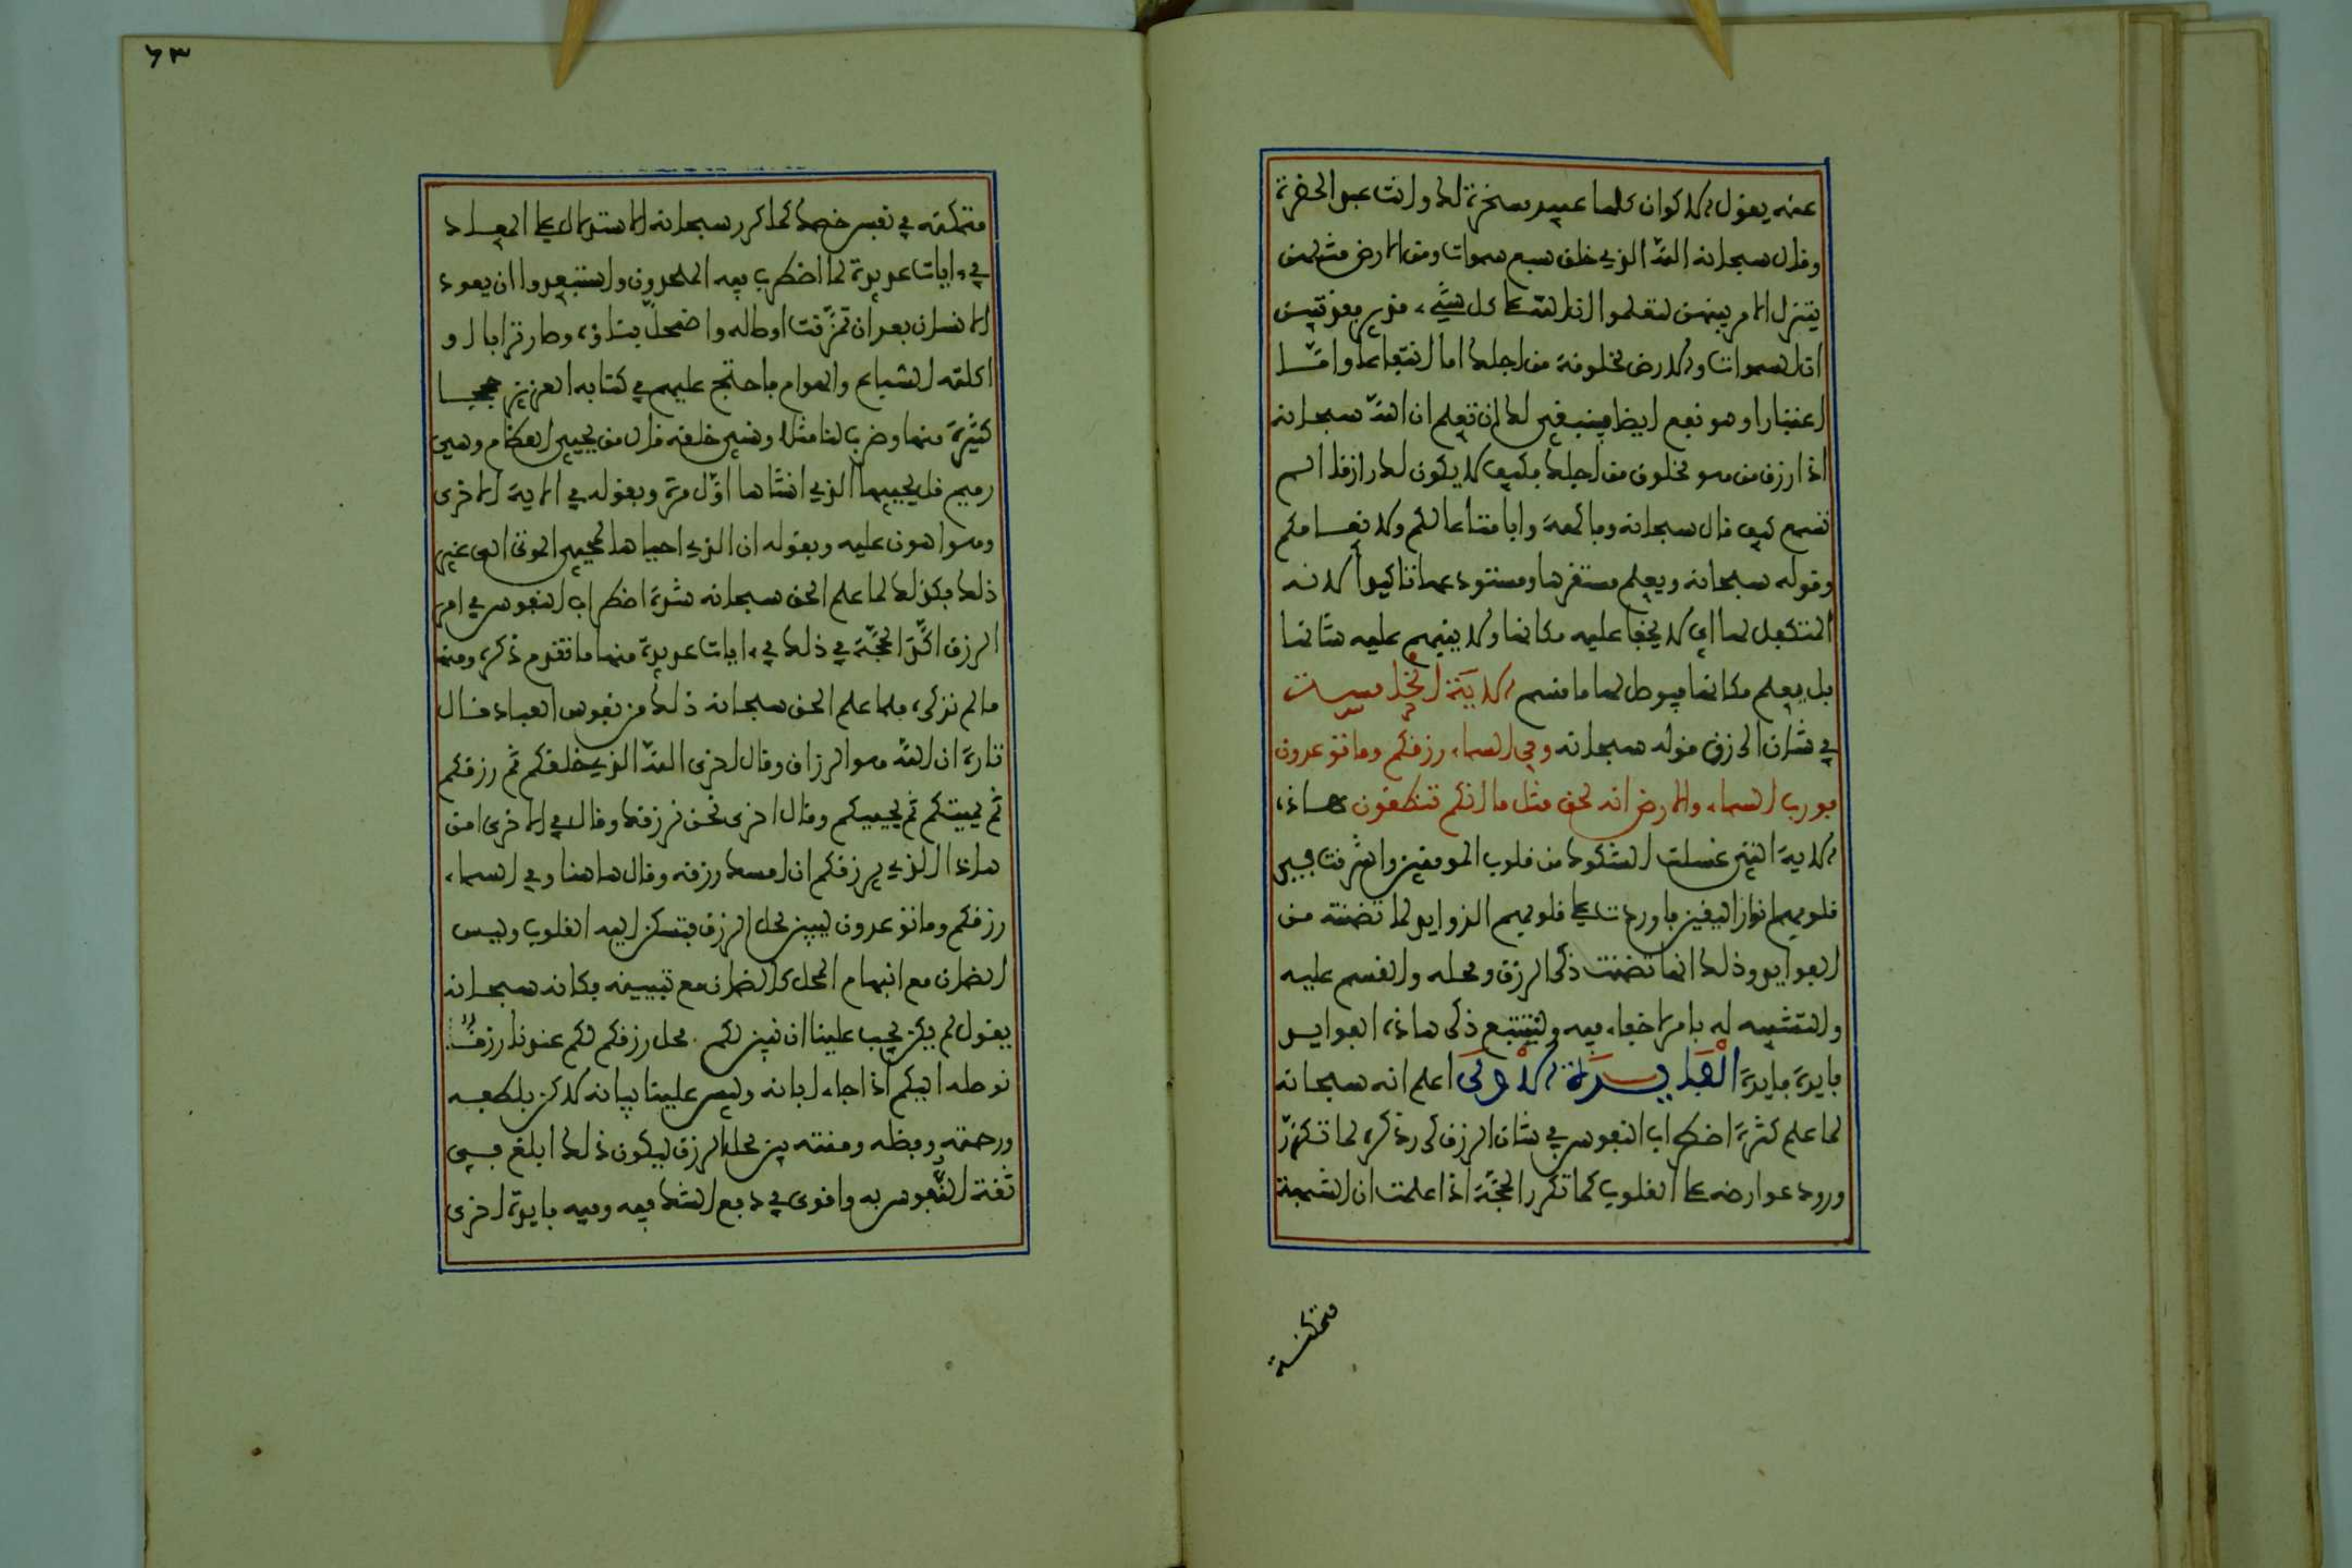 عنه يقول الاكوان كلها عبيد مسخرة لك وانت عبد الحضرة
وقال سبحانه الله الذي خلق سبع سموات ومن الارض مثلهن
يتنزل الامر بينهن لتعلموا ان الله على كل شيء قدير فقد تبين
ان السموات والارض مخلوقة من اجلك اما انتفاعا واما
اعتبارا وهو نفع ايضا فينبغي لك ان تعلم ان الله سبحانه
اذا رزق من هو مخلوق من اجلك فكيف لا يكون لك رازقا الم
تسمع كيف قال سبحانه وفاكهة وابا متاعا لكم ولانعامكم
وقوله سبحانه ويعلم مستقرها ومستودعها تاكيدا لانه
المتكفل لها اي لا يخفا عليه مكانها ولا ينبهم عليه شانها
بل يعلم مكانها فيوصل لها ما قسم الاية الخامسة
في شان الرزق قوله سبحانه وفي السماء رزقكم وما توعدون
فورب السماء والارض انه لحق مثل ما انكم تنطقون هاذه
الاية التي غسلت الشكوك من قلوب المومنين واشرقت في
قلوبهم انوار اليقين فاوردت على قلوبهم الزوايد لما تضمنته من
الفوايد وذلك انها تضمنت ذكر الرزق ومحله والقسم عليه
والتشبيه له بامر لا خفاء فيه ولنتتبع ذكر هاذه الفوايد
فايدة فايدة الفايدة الاولى اعلم انه سبحانه
لما علم كثرة اضطراب النفوس في شان الرزق كرر ذكره لما تكرر
ورود عوارضه على القلوب كما تكرر الحجة اذا علمت ان الشبهة
متمكنة
٦٣
متمكنة في نفس خصمك كما كرر سبحانه الاستدلال على المعاد
في ءايات عديدة لما اضطرب فيه الملحدون واستبعدوا ان يعود
الانسان بعد ان تمزقت اوصاله واضمحل بناؤه وصار ترابا او
اكلته السباع والهوام فاحتج عليهم في كتابه العزيز حججا
كثيرة منها وضرب لنا مثلا ونسي خلقه قال من يحيي العظام وهي
رميم قل يحييها الذي انشاها اول مرة وبقوله في الاية الاخرى
وهو اهون عليه وبقوله ان الذي احياها لمحيي الموتى الى غير
ذلك فكذلك لما علم الحق سبحانه شدة اضطراب النفوس في امر
الرزق اكد الحجة في ذلك في ءايات عديدة منها ما تقدم ذكره ومنها
ما لم نذكره فلما علم الحق سبحانه ذلك من نفوس العباد فقال
تارة ان الله هو الرزاق وقال اخرى الله الذي خلقكم ثم رزقكم
ثم يميتكم ثم يحييكم وقال اخرى نحن نرزقك وقال في الاخرى امن
هاذا الذي يرزقكم ان امسك رزقه وقال هاهنا وفي السماء
رزقكم وما توعدون ليبين محل الرزق فتسكن اليه القلوب وليس
الضمان مع انبهام المحل كالضمان مع تبيينه فكانه سبحانه
يقول لم يكن يجب علينا ان نبين لكم محل رزقكم لكم عندنا رزق
نوصله اليكم اذا جاء ابانه وليس علينا بيانه لاكن بلطفه
ورحمته وفضله ومنته بين محل الرزق ليكون ذلك ابلغ في
ثقة النفوس به واقوى في دفع الشك فيه وفيه فايدة اخرى